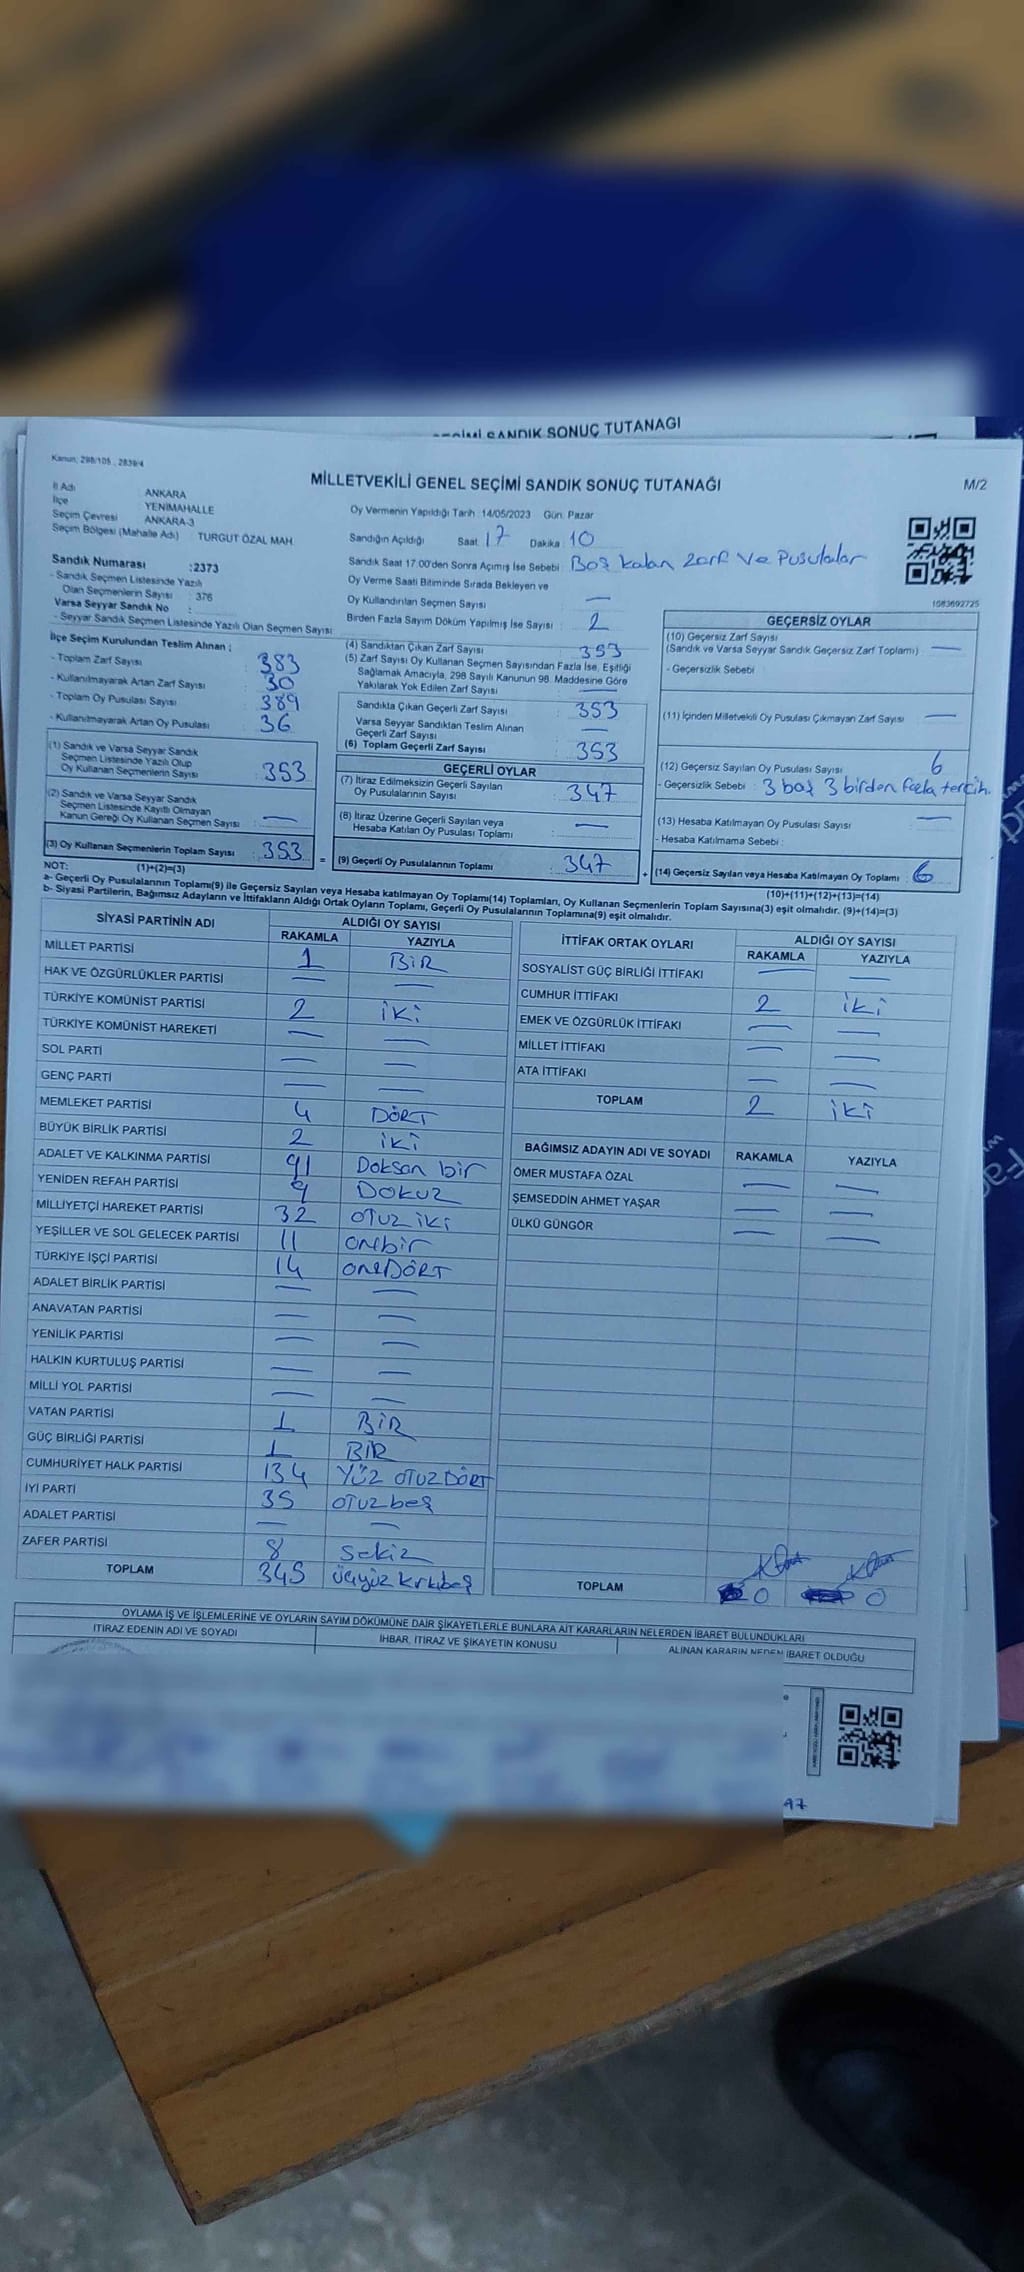 SEÇİMİ SANDIK SONUÇ TUTANAĞI
Kanun; 298/105 , 2839/4
MİLLETVEKİLİ GENEL SEÇİMİ SANDIK SONUÇ TUTANAĞI
M/2
İl Adı ANKARA
İlçe YENİMAHALLE
Seçim Çevresi ANKARA-3
Seçim Bölgesi (Mahalle Adı) TURGUT ÖZAL MAH.
Oy Vermenin Yapıldığı Tarih : 14/05/2023 Gün: Pazar
Sandığın Açıldığı Saat 17 Dakika : 10
Sandık Saat 17.00'den Sonra Açımış İse Sebebi : Boş kalan zarf ve Pusulalar
Oy Verme Saati Bitiminde Sırada Bekleyen ve
Oy Kullandırılan Seçmen Sayısı : —
Birden Fazla Sayım Döküm Yapılmış İse Sayısı : 2
1083692725
Sandık Numarası :2373
- Sandık Seçmen Listesinde Yazılı
Olan Seçmenlerin Sayısı : 376
Varsa Seyyar Sandık No :
- Seyyar Sandık Seçmen Listesinde Yazılı Olan Seçmen Sayısı :
İlçe Seçim Kurulundan Teslim Alınan ;
- Toplam Zarf Sayısı : 383
- Kullanılmayarak Artan Zarf Sayısı : 30
- Toplam Oy Pusulası Sayısı : 389
- Kullanılmayarak Artan Oy Pusulası : 36
(1) Sandık ve Varsa Seyyar Sandık
Seçmen Listesinde Yazılı Olup
Oy Kullanan Seçmenlerin Sayısı : 353
(2) Sandık ve Varsa Seyyar Sandık
Seçmen Listesinde Kayıtlı Olmayan
Kanun Gereği Oy Kullanan Seçmen Sayısı : —
(3) Oy Kullanan Seçmenlerin Toplam Sayısı : 353
(1)+(2)=(3)
(4) Sandıktan Çıkan Zarf Sayısı : 353
(5) Zarf Sayısı Oy Kullanan Seçmen Sayısından Fazla İse, Eşitliği
Sağlamak Amacıyla, 298 Sayılı Kanunun 98. Maddesine Göre
Yakılarak Yok Edilen Zarf Sayısı : —
Sandıkta Çıkan Geçerli Zarf Sayısı : 353
Varsa Seyyar Sandıktan Teslim Alınan
Geçerli Zarf Sayısı : —
(6) Toplam Geçerli Zarf Sayısı : 353
GEÇERLİ OYLAR
(7) İtiraz Edilmeksizin Geçerli Sayılan
Oy Pusulalarının Sayısı : 347
(8) İtiraz Üzerine Geçerli Sayılan veya
Hesaba Katılan Oy Pusulası Toplamı : —
= (9) Geçerli Oy Pusulalarının Toplamı : 347
GEÇERSİZ OYLAR
(10) Geçersiz Zarf Sayısı
(Sandık ve Varsa Seyyar Sandık Geçersiz Zarf Toplamı) : —
- Geçersizlik Sebebi :
(11) İçinden Milletvekili Oy Pusulası Çıkmayan Zarf Sayısı : —
(12) Geçersiz Sayılan Oy Pusulası Sayısı : 6
- Geçersizlik Sebebi : 3 boş 3 birden fazla tercih.
(13) Hesaba Katılmayan Oy Pusulası Sayısı : —
- Hesaba Katılmama Sebebi :
+ (14) Geçersiz Sayılan veya Hesaba Katılmayan Oy Toplamı : 6
(10)+(11)+(12)+(13)=(14)
NOT:
a- Geçerli Oy Pusulalarının Toplamı(9) ile Geçersiz Sayılan veya Hesaba katılmayan Oy Toplamı(14) Toplamları, Oy Kullanan Seçmenlerin Toplam Sayısına(3) eşit olmalıdır. (9)+(14)=(3)
b- Siyasi Partilerin, Bağımsız Adayların ve İttifakların Aldığı Ortak Oyların Toplamı, Geçerli Oy Pusulalarının Toplamına(9) eşit olmalıdır.
SİYASİ PARTİNİN ADI ALDIĞI OY SAYISI
RAKAMLA YAZIYLA
MİLLET PARTİSİ 1 BİR
HAK VE ÖZGÜRLÜKLER PARTİSİ — —
TÜRKİYE KOMÜNİST PARTİSİ 2 iKi
TÜRKİYE KOMÜNİST HAREKETİ — —
SOL PARTİ — —
GENÇ PARTİ — —
MEMLEKET PARTİSİ 4 DÖRT
BÜYÜK BİRLİK PARTİSİ 2 iKi
ADALET VE KALKINMA PARTİSİ 91 Doksan bir
YENİDEN REFAH PARTİSİ 9 DOKUZ
MİLLİYETÇİ HAREKET PARTİSİ 32 OTUZ iKi
YEŞİLLER VE SOL GELECEK PARTİSİ 11 onbir
TÜRKİYE İŞÇİ PARTİSİ 14 onDÖRT
ADALET BİRLİK PARTİSİ — —
ANAVATAN PARTİSİ — —
YENİLİK PARTİSİ — —
HALKIN KURTULUŞ PARTİSİ — —
MİLLİ YOL PARTİSİ — —
VATAN PARTİSİ 1 BİR
GÜÇ BİRLİĞİ PARTİSİ 1 BİR
CUMHURİYET HALK PARTİSİ 134 YÜZ OTUZ DÖRT
İYİ PARTİ 35 OTUZ beş
ADALET PARTİSİ — —
ZAFER PARTİSİ 8 Sekiz
TOPLAM 345 üçyüz kırkbeş
İTTİFAK ORTAK OYLARI ALDIĞI OY SAYISI
RAKAMLA YAZIYLA
SOSYALİST GÜÇ BİRLİĞİ İTTİFAKI — —
CUMHUR İTTİFAKI 2 iki
EMEK VE ÖZGÜRLÜK İTTİFAKI — —
MİLLET İTTİFAKI — —
ATA İTTİFAKI — —
TOPLAM 2 iki
BAĞIMSIZ ADAYIN ADI VE SOYADI RAKAMLA YAZIYLA
ÖMER MUSTAFA ÖZAL — —
ŞEMSEDDİN AHMET YAŞAR — —
ÜLKÜ GÜNGÖR — —
TOPLAM 0 0
OYLAMA İŞ VE İŞLEMLERİNE VE OYLARIN SAYIM DÖKÜMÜNE DAİR ŞİKAYETLERLE BUNLARA AİT KARARLARIN NELERDEN İBARET BULUNDUKLARI
İTİRAZ EDENİN ADI VE SOYADI İHBAR, İTİRAZ VE ŞİKAYETİN KONUSU ALINAN KARARIN NEDEN İBARET OLDUĞU